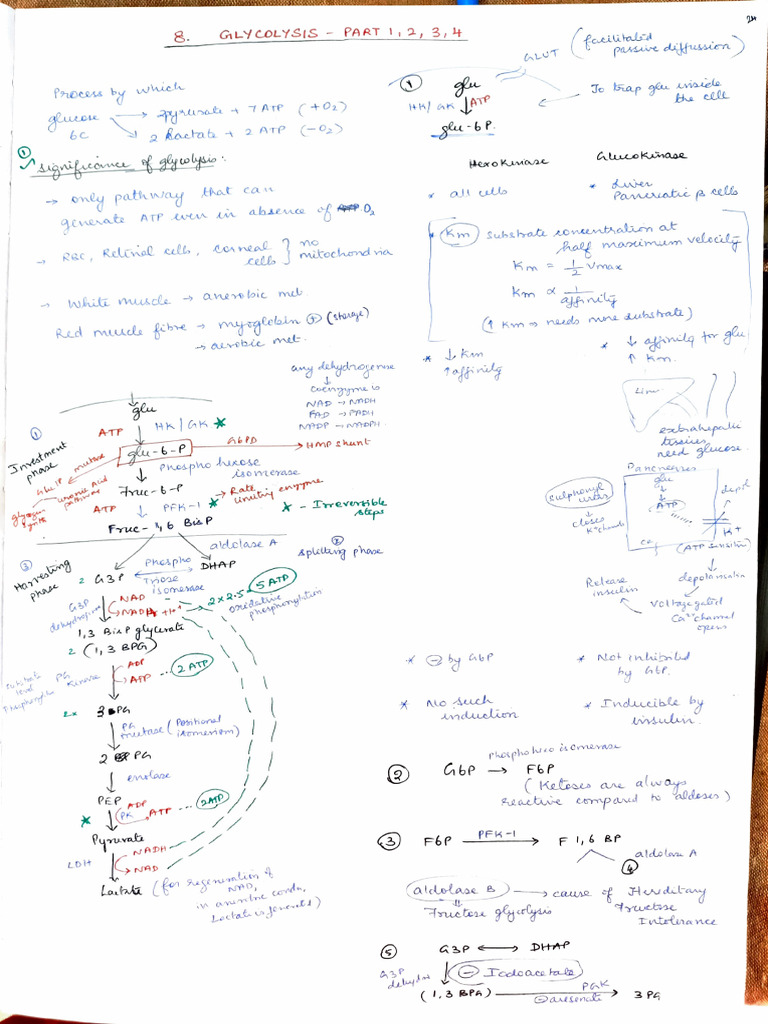 24
8. GLYCOLYSIS - PART 1, 2, 3, 4
Process by which
glucose → 2 pyruvate + 7 ATP (+O2)
6C → 2 Lactate + 2 ATP (-O2)
① Significance of glycolysis:
→ only pathway that can
generate ATP even in absence of O2
→ RBC, Retinal cells, corneal cells } no mitochondria
→ White muscle → anerobic met.
Red muscle fibre → myoglobin ⊕ (storage)
→ aerobic met.
any dehydrogenase
↓
coenzyme is
NAD → NADH
FAD → FADH
NADP → NADPH
① Investment phase
glu
ATP HK/GK *
glu-6-P G6PD → HMP shunt
mutase
Glu 1P
uronic acid pathway
glycogen
Phospho hexose isomerase
Fruc-6-P
ATP PFK-1 * → Rate limiting enzyme
* - Irreversible steps
Fruc-1,6 BisP
aldolase A
② splitting phase
③ Harvesting phase
2 G3P Phospho Triose isomerase DHAP
G3P dehydrogen
NAD
NADH + H+ → 2 x 2.5 = 5 ATP
oxidative phosphorylation
1,3 BisP glycerate
2 (1,3 BPG)
PG Kinase ADP
ATP ... 2 ATP
level
2x 3 PG
PG mutase (Positional isomerism)
2 PG
enolase
PEP
* PK ADP
ATP ... 2 ATP
Pyruvate
LDH NADH
NAD
Lactate (for regeneration of NAD,
in anerobic condn,
Lactate is generated)
① glu GLUT (facilitated passive diffussion)
HK/GK ATP
To trap glu inside the cell
glu-6P.
Hexokinase Glucokinase
* all cells * Liver
Pancreatic β cells
* Km substrate concentration at
half maximum velocity
Km = 1/2 Vmax
Km ∝ 1/affinity
(↑ Km → needs more substrate)
* ↓ Km
↑ affinity
* ↓ affinity for glu
↑ Km.
Liver
extrahepatic
tissues
need glucose.
Pancreas
sulphonyl ureas
↓
closes
K+ channels
glu
↓
ATP
depol
K+
(ATP sensitive)
Ca
depolarisation
Voltage gated
Ca2+ channel
opens
Release
insulin
* ⊖ by G6P * Not inhibited
by G6P.
* No such
induction
* Inducible by
insulin.
② G6P → F6P
phosphohexo isomerase
(Ketoses are always
reactive compared to aldoses)
③ F6P PFK-1 → F 1,6 BP
aldolase A
④
aldolase B → cause of Hereditary
Fructose
Intolerance
Fructose glycolysis
⑤ G3P ↔ DHAP
G3P dehydro ⊖ Iodoacetate
(1,3 BPG) PGK → 3 PG
⊖ arsenate